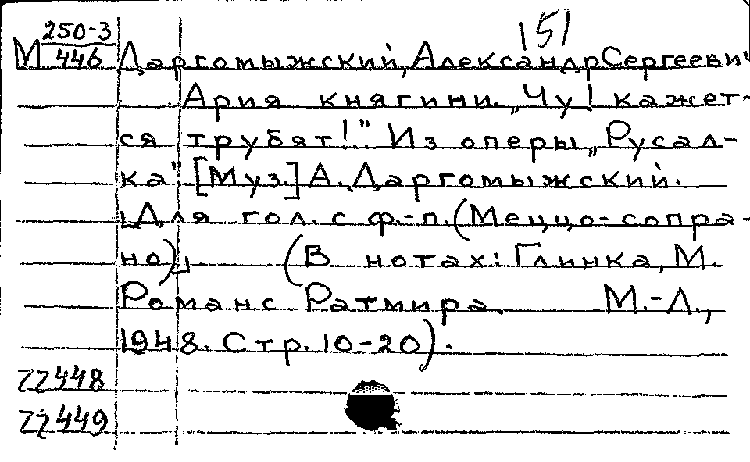 151
М 250-3
446 Даргомыжский, Александр Сергеевич
Ария княгини. „Чу! кажет-
ся трубят!" Из оперы „Русал-
ка" [Муз.] А. Даргомыжский.
[Для гол. с ф.-п. (Меццо-сопра-
но)]. (В нотах: Глинка, М.
Романс Ратмира. М.-Л.,
1948. Стр. 10-20).
22448
22449